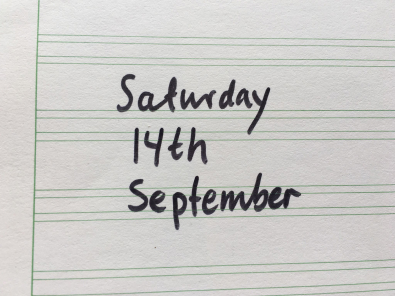 Saturday
14th
September